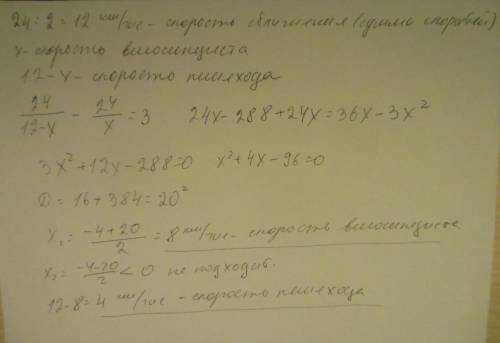 24 : 2 = 12 км/час - скорость сближения (сумма скоростей)
x - скорость велосипедиста
12 - x - скорость пешехода
24/(12-x) - 24/x = 3    24x - 288 + 24x = 36x - 3x²
3x² + 12x - 288 = 0    x² + 4x - 96 = 0
D = 16 + 384 = 20²
x₁ = (-4+20)/2 = 8 км/час - скорость велосипедиста
x₂ = (-4-20)/2 < 0 не подходит.
12 - 8 = 4 км/час - скорость пешехода